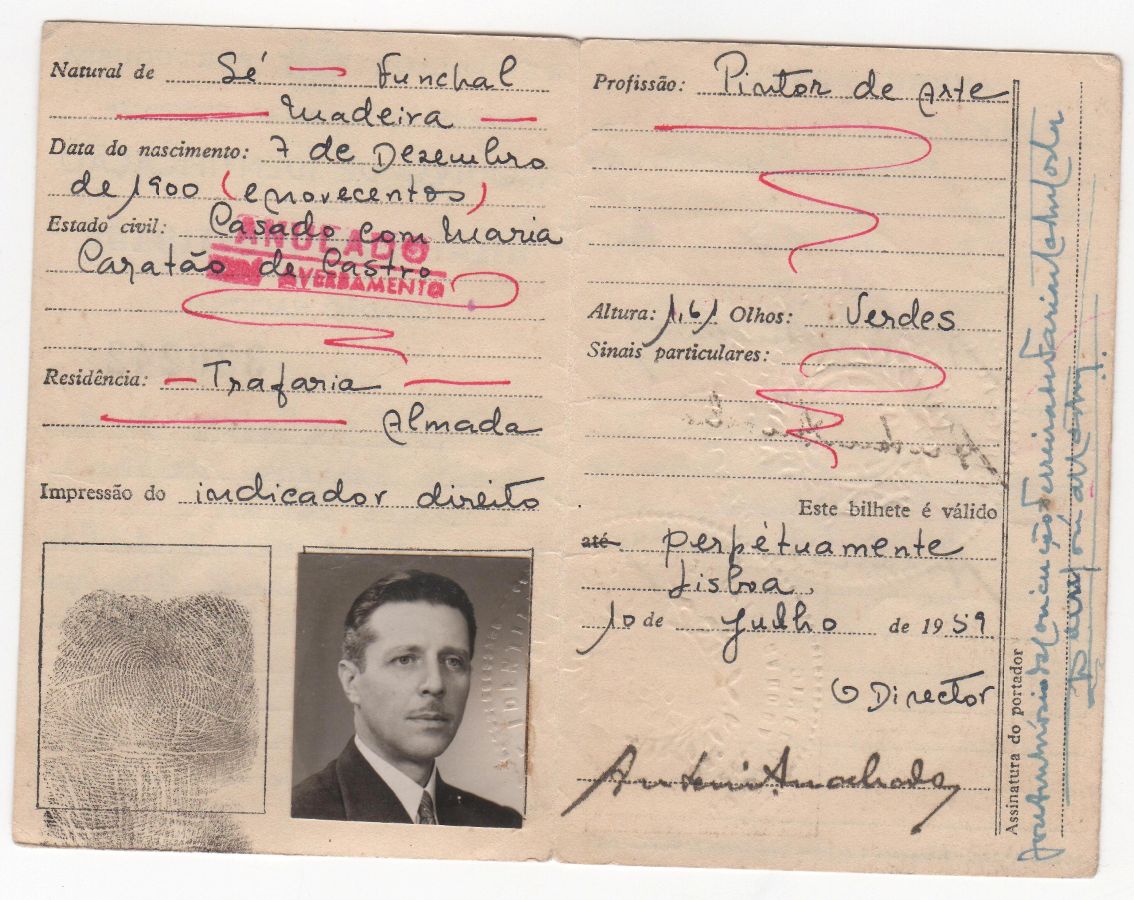 Natural de Sé Funchal
Madeira
Data do nascimento: 7 de Dezembro
de 1900 (e novecentos)
Estado civil: Casado com Maria
ANULADO
Caratão de Castro
AVERBAMENTO
Residência: Trafaria
Almada
Impressão do indicador direito
Profissão: Pintor de Arte
Altura: 1,61 Olhos: Verdes
Sinais particulares:
Este bilhete é válido
até perpétuamente
Lisboa,
10 de Julho de 1959
O Director
Assinatura do portador